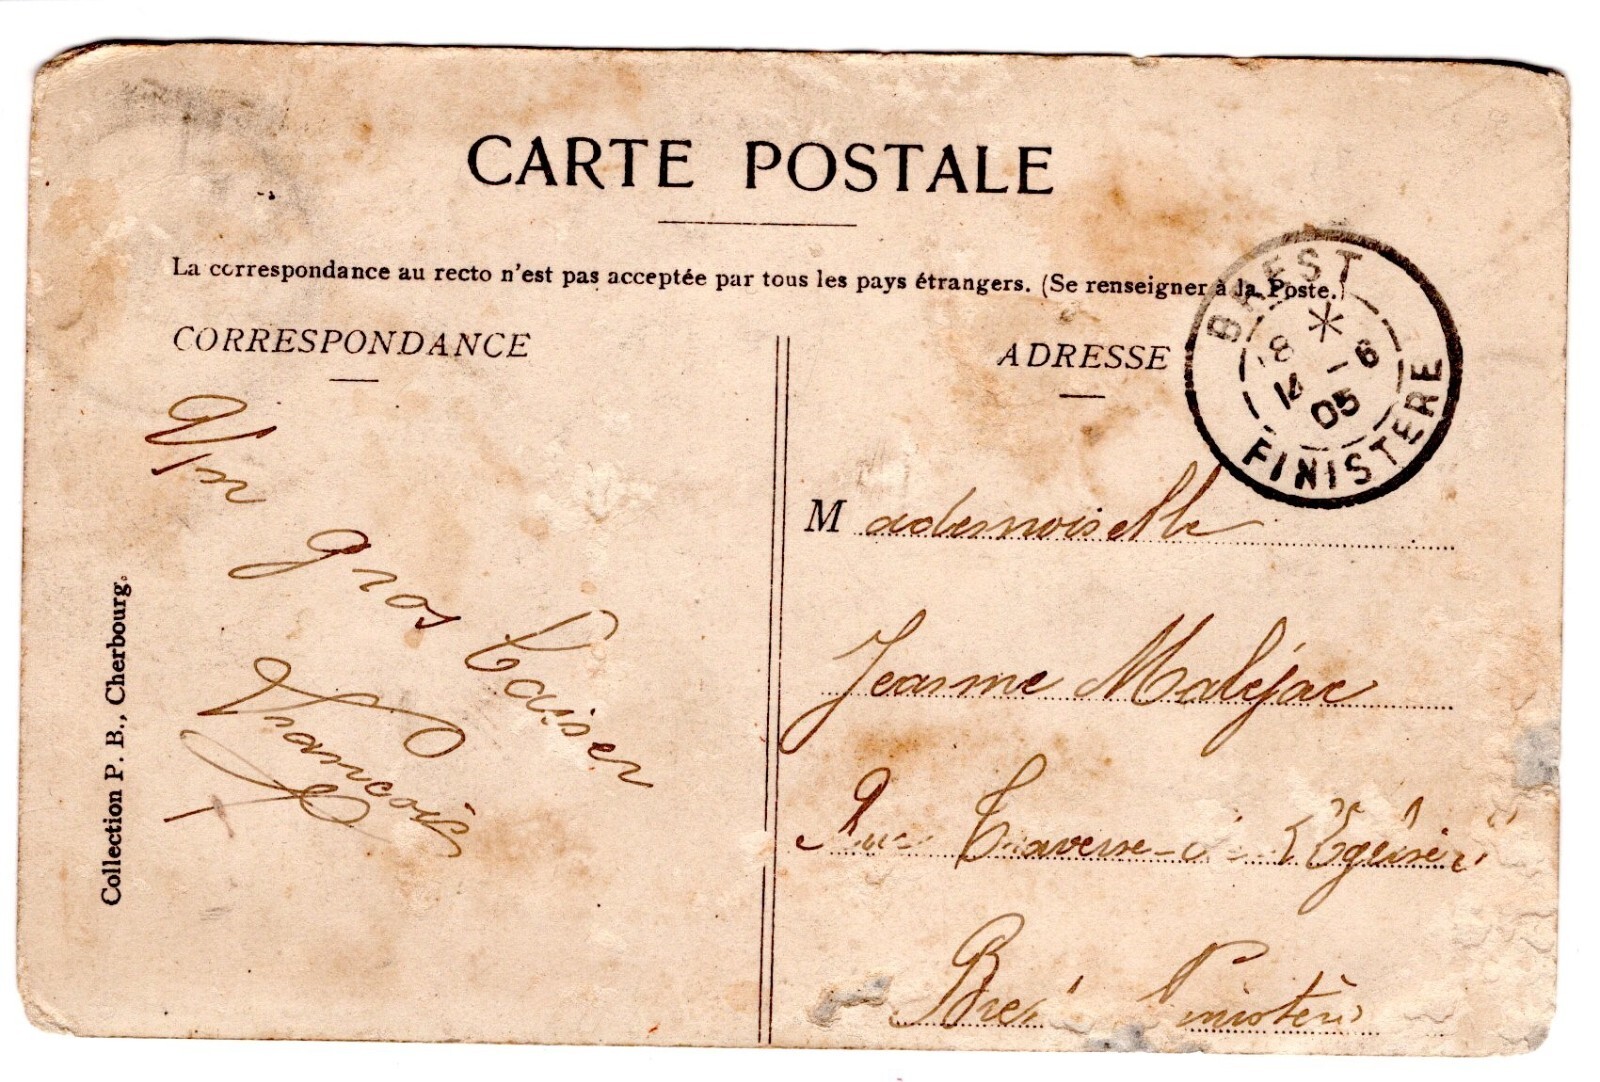 CARTE POSTALE
La correspondance au recto n'est pas acceptée par tous les pays étrangers. (Se renseigner à la Poste.)
CORRESPONDANCE
Un
gros baiser
François
Collection P. B., Cherbourg.
ADRESSE
BREST
8 * 
14 - 6
05
FINISTERE
Mademoiselle
Jeanne Maléjac
Rue Traverse de l'Église
Brest Finistère